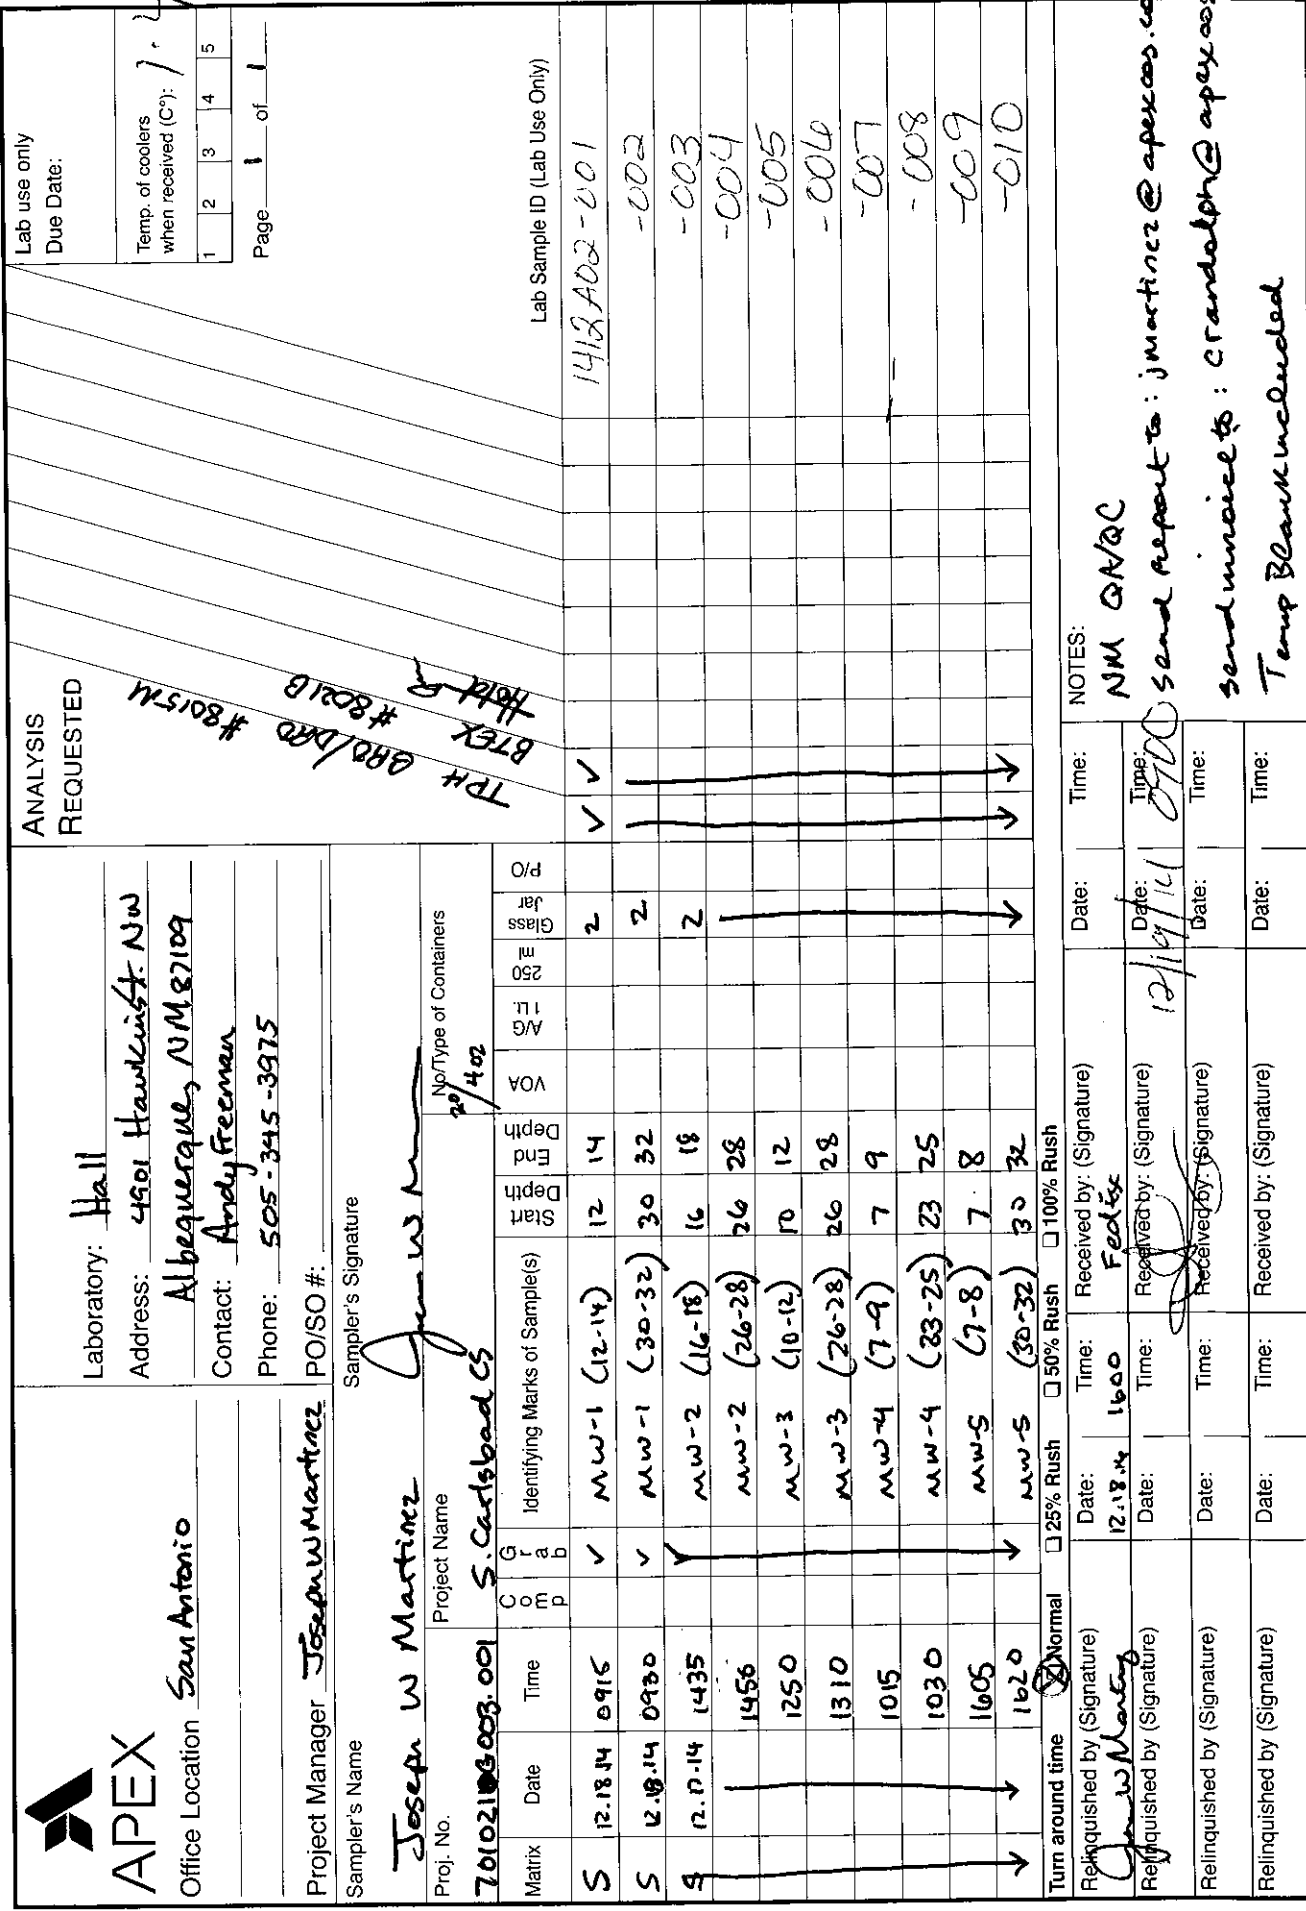 APEX
Office Location San Antonio
Project Manager Joseph W Martinez
Laboratory: Hall
Address: 4901 Hawkins St. NW
Albequerque, NM 87109
Contact: Andy Freeman
Phone: 505-345-3975
PO/SO #:
ANALYSIS
REQUESTED
TPH GRO/DRO #8015M
BTEX #8021B
Hold
Lab use only
Due Date:
Temp. of coolers
when received (C°):
1 2 3 4 5
Page 1 of 1
Sampler's Name
Joseph W Martinez
Sampler's Signature
Proj. No.
Project Name
S. Carlsbad CS
No/Type of Containers
20/4oz
Matrix Date Time Comp Grab Identifying Marks of Sample(s) Start Depth End Depth VOA A/G 1 Lt. 250 ml Glass Jar P/O Lab Sample ID (Lab Use Only)
S 12.18.14 0915 ✓ MW-1 (12-14) 12 14 2 ✓ ✓ 1412A02-001
S 12.18.14 0930 ✓ MW-1 (30-32) 30 32 2 -002
S 12.17.14 1435 MW-2 (16-18) 16 18 2 -003
MW-2 (26-28) 26 28 -004
1250 MW-3 (10-12) 10 12 -005
1310 MW-3 (26-28) 26 28 -006
1015 MW-4 (7-9) 7 9 -007
1030 MW-4 (23-25) 23 25 -008
1605 MW-5 (7-8) 7 8 -009
1620 MW-5 (30-32) 30 32 -010
Turn around time ☒ Normal ☐ 25% Rush ☐ 50% Rush ☐ 100% Rush
Relinquished by (Signature) Date: 12.18.14 Time: 1600 Received by: (Signature) FedEx Date: Time:
Relinquished by (Signature) Date: Time: Received by: (Signature) Date: 12/19/14 Time: 0700
Relinquished by (Signature) Date: Time: Received by: (Signature) Date: Time:
Relinquished by (Signature) Date: Time: Received by: (Signature) Date: Time:
NOTES:
NM QA/QC
Send report to: jmartinez@apexcos.co
send invoice to: crandolph@apexcos
Temp Blank included